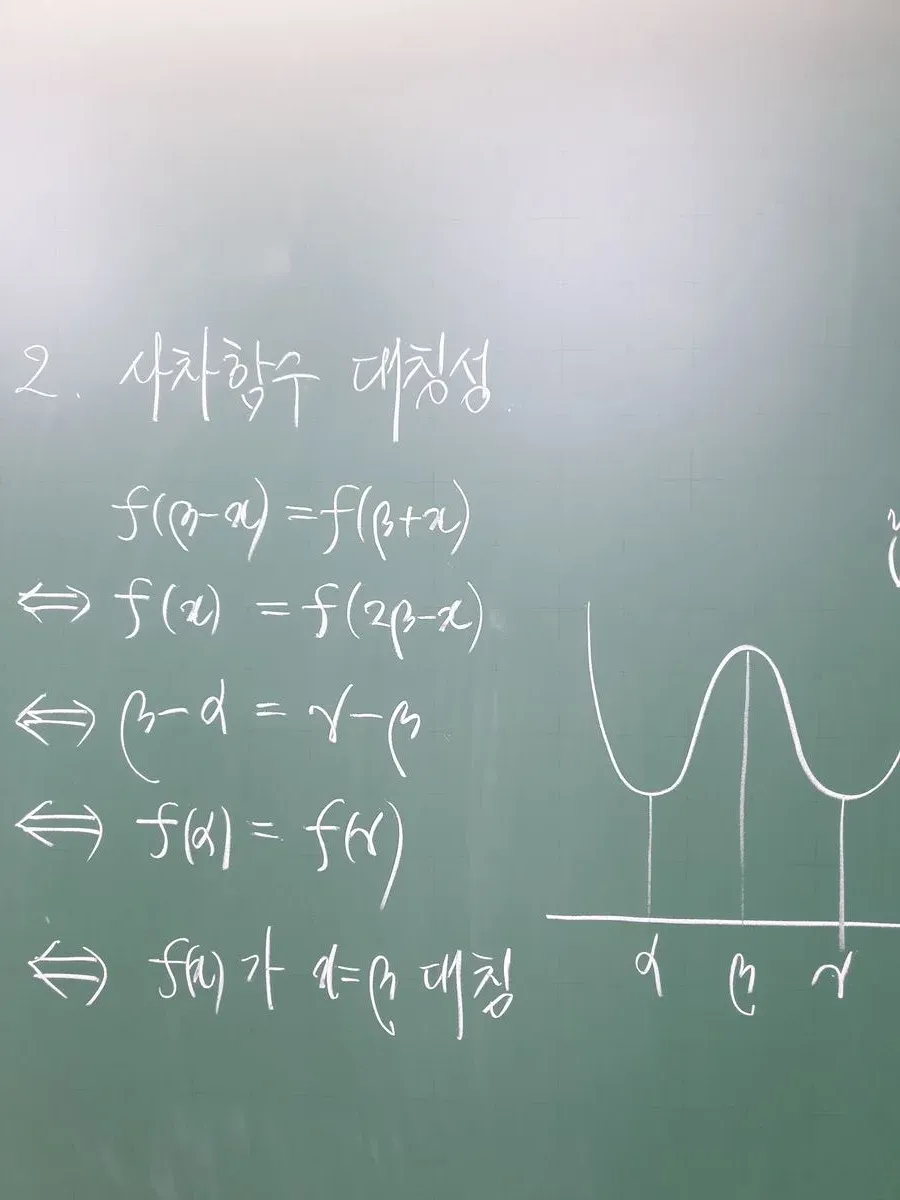 2. 사차함수 대칭성.
f(β-x) = f(β+x)
⇔ f(x) = f(2β-x)
⇔ β-α = γ-β
⇔ f(α) = f(γ)
⇔ f(x)가 x=β 대칭
α β γ